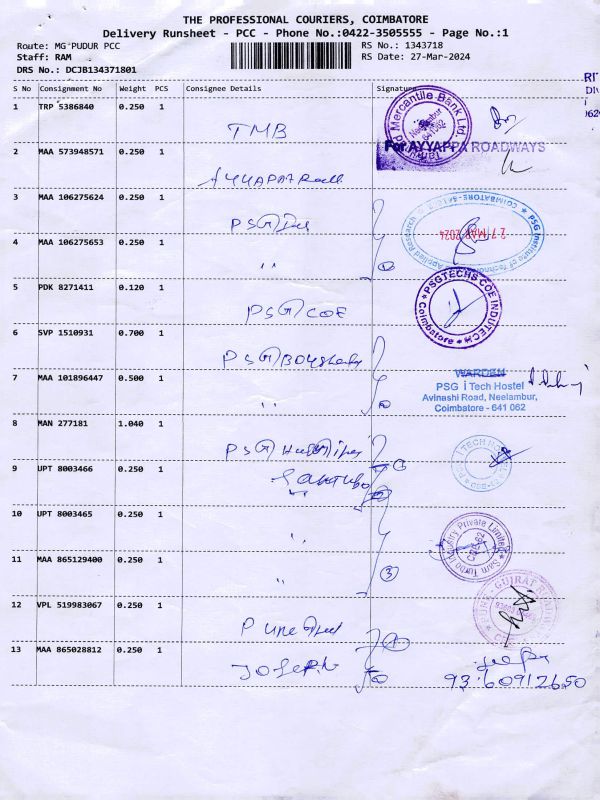 THE PROFESSIONAL COURIERS, COIMBATORE
Delivery Runsheet - PCC - Phone No.:0422-3505555 - Page No.:1
Route: MG PUDUR PCC
RS No.: 1343718
Staff: RAM
RS Date: 27-Mar-2024
DRS No.: DCJB134371801
S No Consignment No Weight PCS Consignee Details Signature
1 TRP 5386840 0.250 1
TMB
Mercantile Bank Ltd
Neelambur
641062
2 MAA 573948571 0.250 1
For AYYAPPA ROADWAYS
3 MAA 106275624 0.250 1
PSG
PSG Institute of Technology
Applied Research
COIMBATORE
27 MAR 2024
4 MAA 106275653 0.250 1
"
5 PDK 8271411 0.120 1
PSG COE
PSGTECHS COE INDUTECH
Coimbatore
6 SVP 1510931 0.700 1
PSG
7 MAA 101896447 0.500 1
"
WARDEN
PSG i Tech Hostel
Avinashi Road, Neelambur,
Coimbatore - 641 062
8 MAN 277181 1.040 1
PSG
I TECH
9 UPT 8003466 0.250 1
"
10 UPT 8003465 0.250 1
"
Private Limited
11 MAA 865129400 0.250 1
"
3
12 VPL 519983067 0.250 1
Pune
GUJRAT
13 MAA 865028812 0.250 1
Joseph
93 60912650